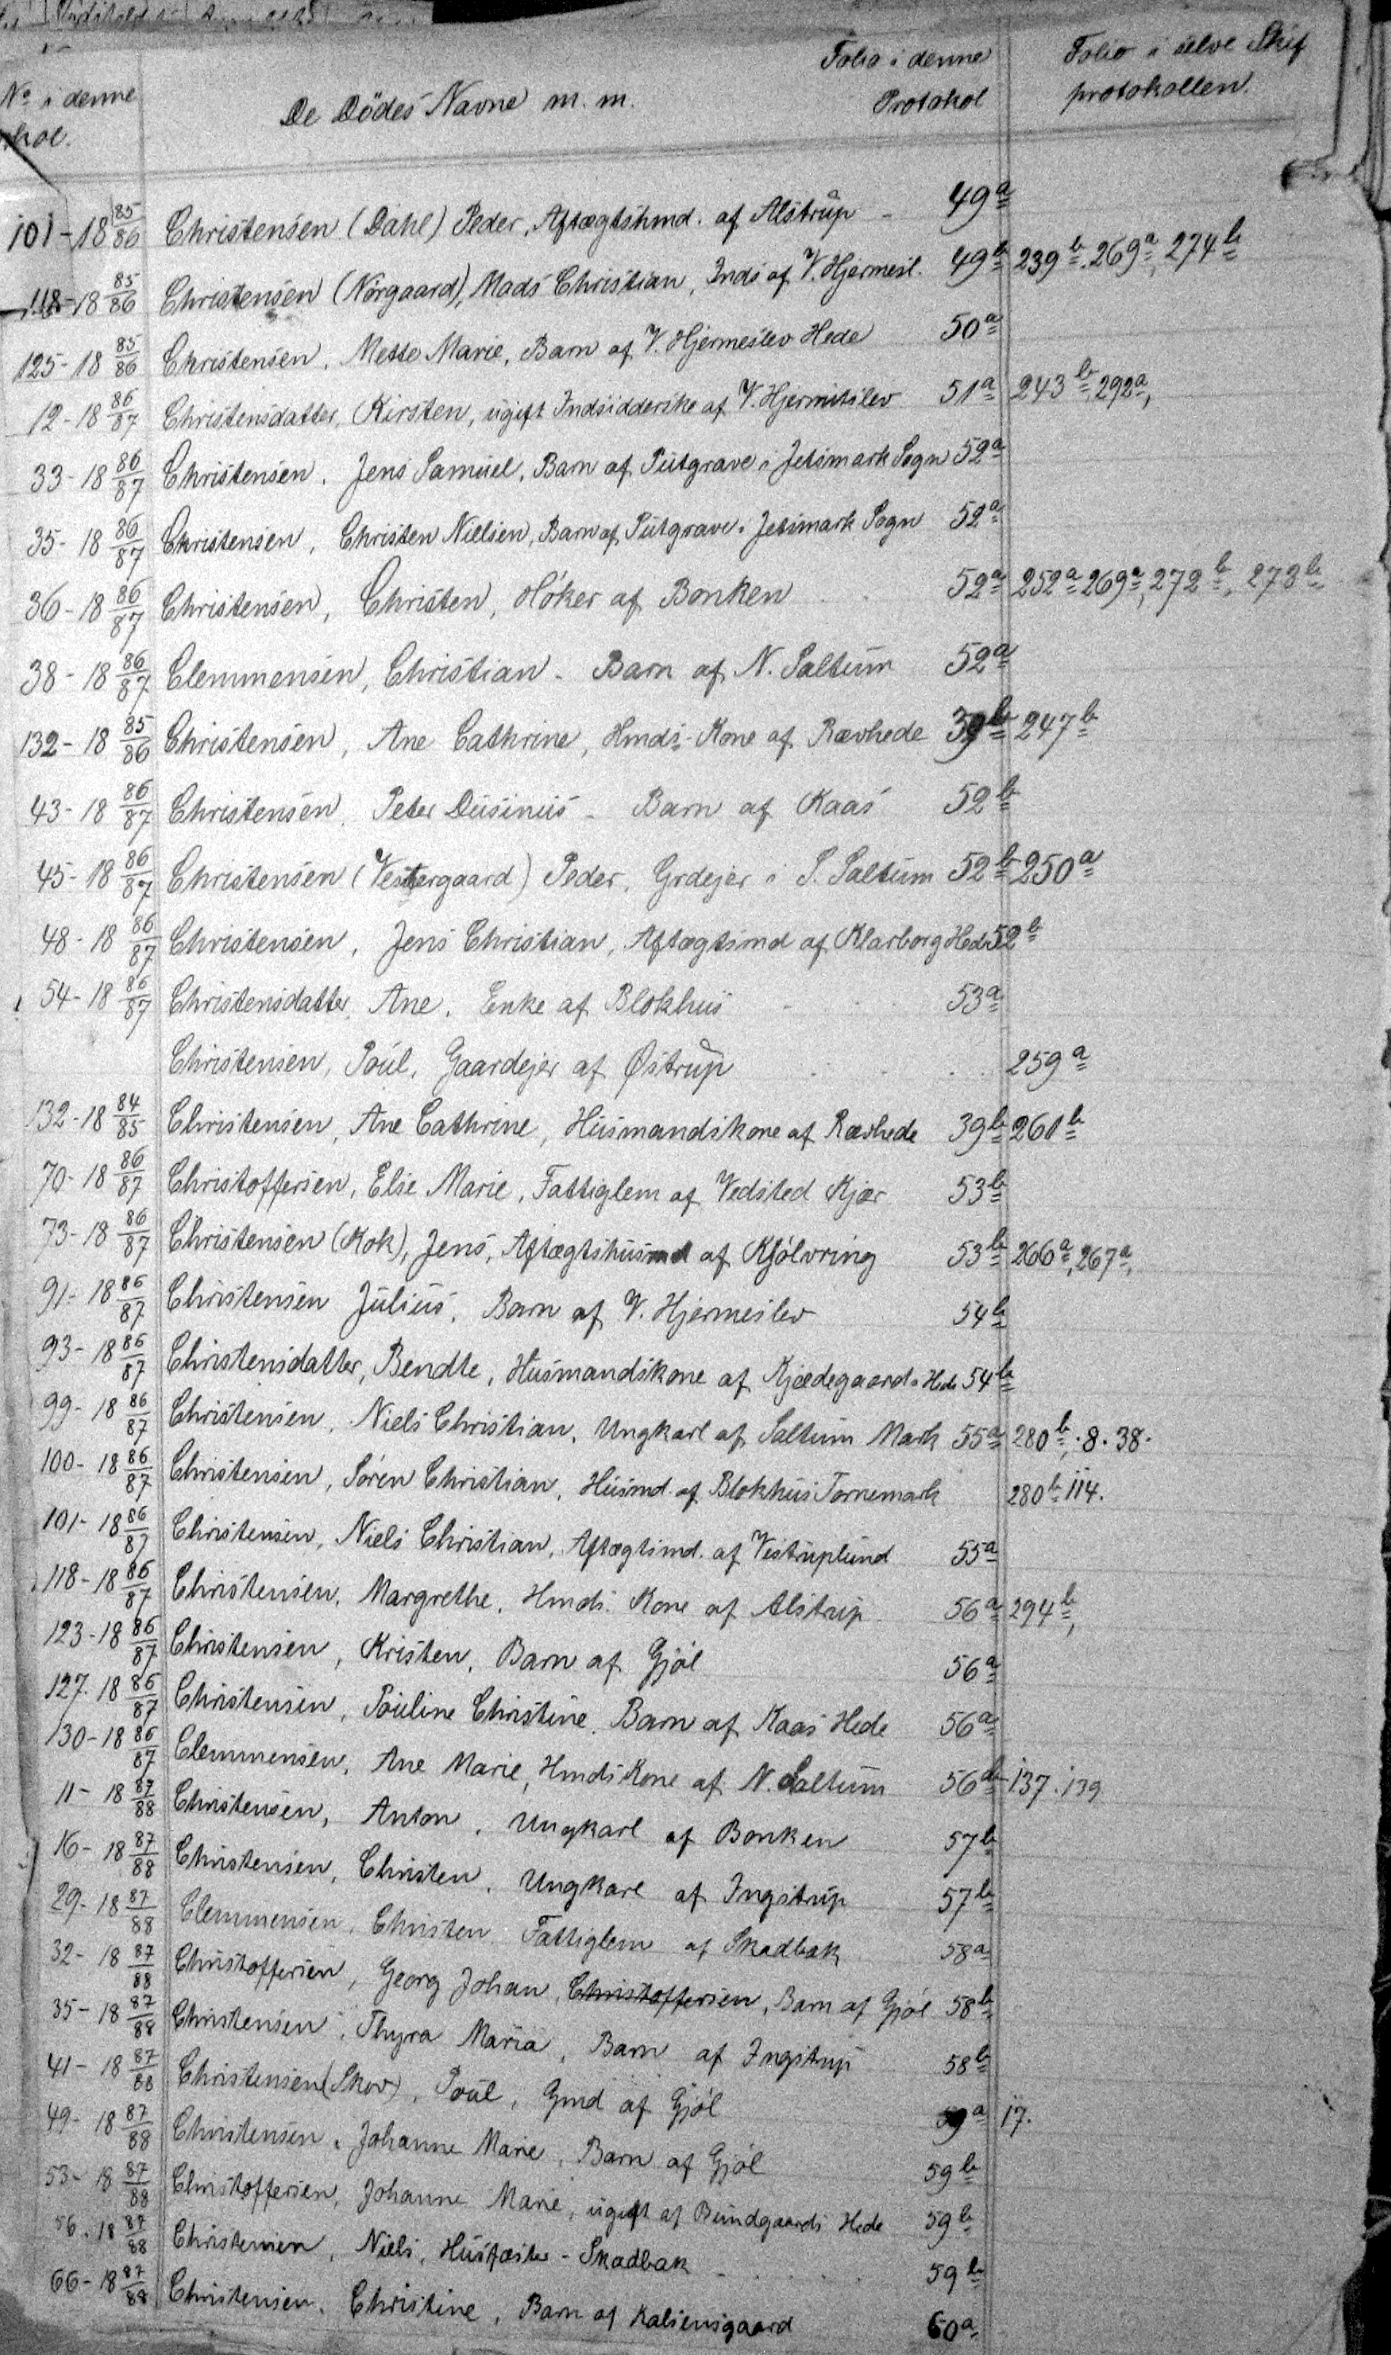 No i denne
kol.
De Dödes Navne m. m.
Folio i denne
Protokol
Folio i selve Skif
protokollen.
101-18 85/86 Christensen (Dahl) Peder, Aftægtshmd. af Alstrup - 49a
118-18 85/86 Christensen (Nørgaard), Mads Christian, Inds af V. Hjermesl. 49b 239b. 269a, 274b
125-18 85/86 Christensen, Mette Marie, Barn af V. Hjermeslev Hede 50a
12-18 86/87 Christensdatter, Kirsten, ugift Indsidderske af V. Hjermitslev 51a 243b, 292a,
33-18 86/87 Christensen, Jens Samuel, Barn af Pütgrave i Jetsmark Sogn 52a
35-18 86/87 Christensen, Christen Nielsen, Barn af Pütgrave i Jetsmark Sogn 52a
36-18 86/87 Christensen, Christen, Höker af Bonken 52a 252a 269a, 272b, 273b
38-18 86/87 Clemmensen, Christian - Barn af N. Saltum 52a
132-18 85/86 Christensen, Ane Cathrine, Hmds-Kone af Rævhede 39b 247b
43-18 86/87 Christensen, Peter Dusinius - Barn af Kaas 52b
45-18 86/87 Christensen (Vestergaard) Peder, Grdejer i S. Saltum 52b 250a
48-18 86/87 Christensen, Jens Christian, Aftægtsmd af Klarborg Hede 52b
54-18 86/87 Christensdatter, Ane, Enke af Blokhus 53a
Christensen, Poul, Gaardejer af Østrup 259a
132-18 84/85 Christensen, Ane Cathrine, Husmandskone af Rævhede 39b 261b
70-18 86/87 Christoffersen, Else Marie, Fattiglem af Vedsted Kjær 53b
73-18 86/87 Christensen (Kok), Jens, Aftægtshusmd af Kjølvring 53b 266a, 267a,
91-18 86/87 Christensen Julius, Barn af V. Hjermeslev 54b
93-18 86/87 Christensdatter, Bendte, Husmandskone af Kjædegaards Hede 54b
99-18 86/87 Christensen, Niels Christian, Ungkarl af Saltum Mark 55a 280b, . 8. 38.
100-18 86/87 Christensen, Sören Christian, Husmd. af Blokhus Tornemark 280b 114.
101-18 86/87 Christensen, Niels Christian, Aftægtsmd. af Vestruplund 55a
118-18 86/87 Christensen, Margrethe, Hmds. Kone af Alstrup 56a 294b,
123-18 86/87 Christensen, Kristen, Barn af Gjøl 56a
127-18 86/87 Christensen, Pouline Christine, Barn af Kaas Hede 56a
130-18 86/87 Clemmensen, Ane Marie, Hmds Kone af N. Saltum 56a 137. 139
11-18 87/88 Christensen, Anton, Ungkarl af Bonken 57b
16-18 87/88 Christensen, Christen, Ungkarl af Ingstrup 57b
29-18 87/88 Clemmensen, Christen Fattiglem af Skadbæk 58a
32-18 87/88 Christoffersen, Georg Johan, Christoffersen, Barn af Gjøl 58b
35-18 87/88 Christensen, Thyra Maria, Barn af Ingstrup 58b
41-18 87/88 Christensen (Skov), Poul, Gmd af Gjøl 59a 17.
49-18 87/88 Christensen, Johanne Marie, Barn af Gjøl 59b
53-18 87/88 Christoffersen, Johanne Marie, ugift af Bundgaards Hede 59b
56-18 87/88 Christensen, Niels, Husfæster - Skadbæk 59b
66-18 87/88 Christensen, Christine, Barn af Kalsensgaard 60a